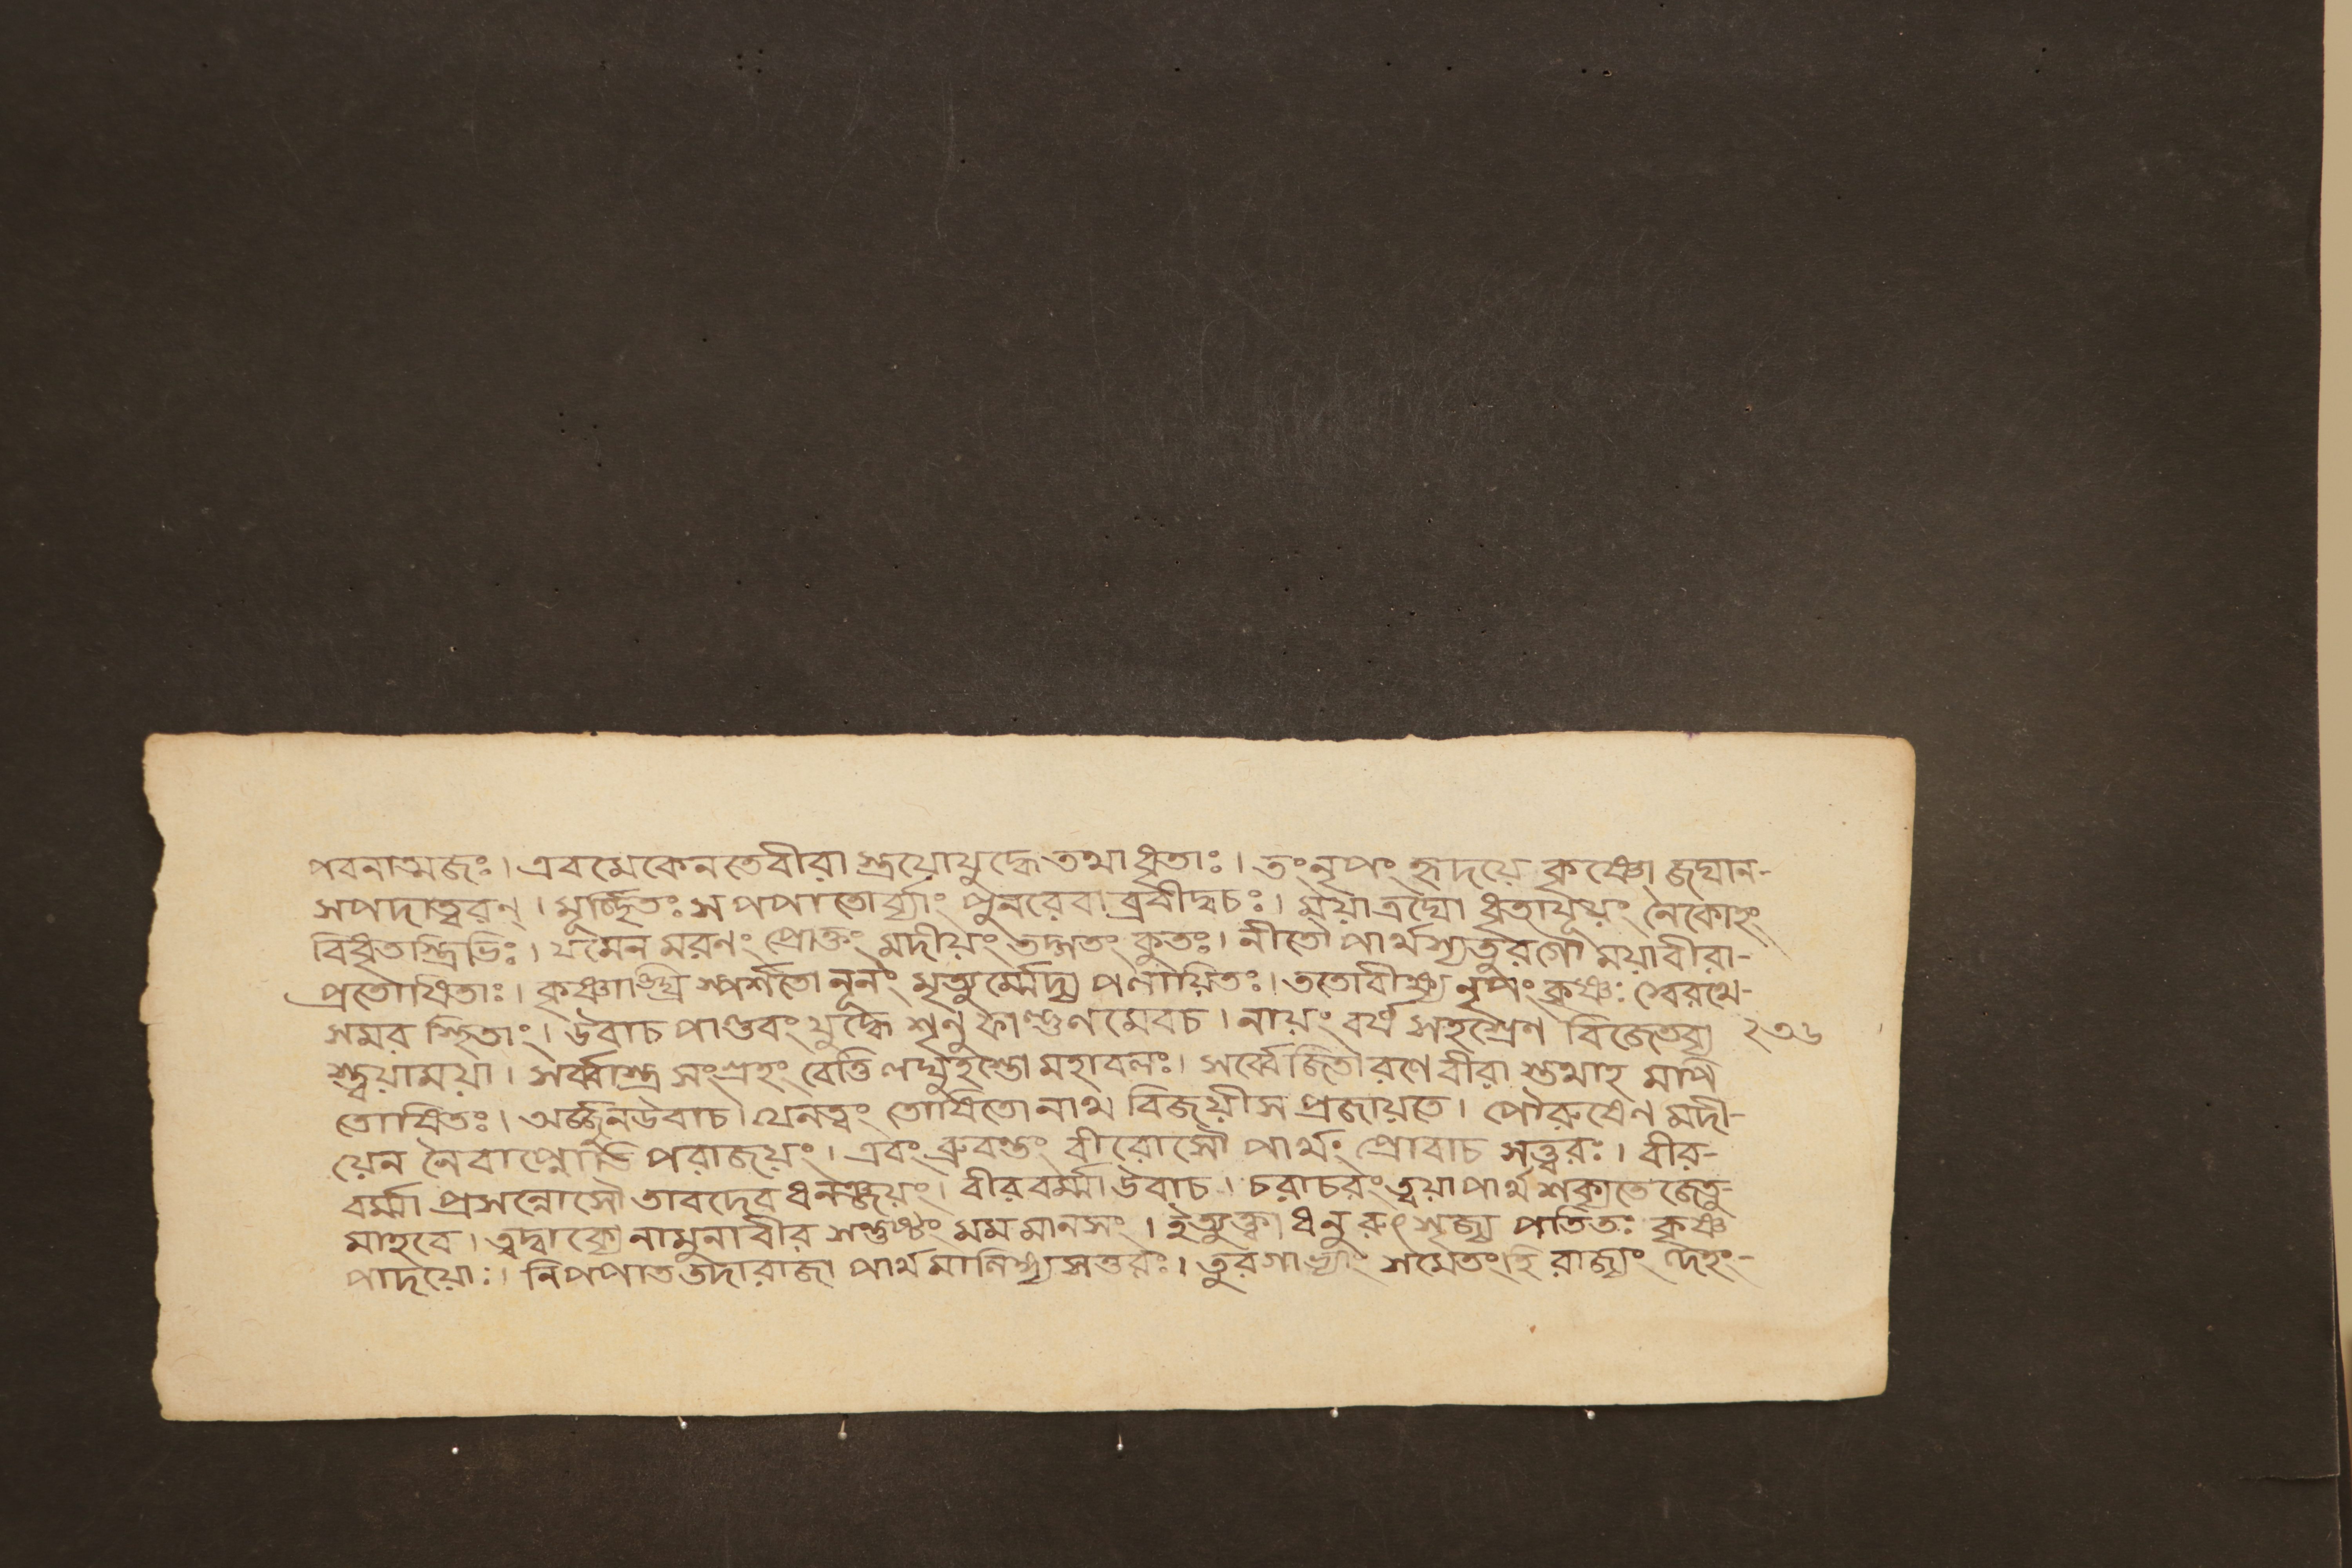 পবনাত্মজঃ। এবমেকেনতেবীরা স্ত্রয়োযুদ্ধেতথাধৃতাঃ। তংনৃপং হৃদয়ে কৃষ্ণো জঘান-
সপদাত্বরন্। মূর্চ্ছিতঃ স পপাতোর্ব্ব্যাং পুনরেবা ব্রবীদ্বচঃ। ময়াত্রয়ো ধৃতাযূয়ং নৈকোহং
বিধৃতস্ত্রিভিঃ। যমেন মরণং প্রোক্তং মদীয়ং তদ্গতং কুতঃ। নীতৌ পার্থস্যতুরগৌ ময়াবীরা-
প্রতোষিতাঃ। কৃষ্ণাঙ্ঘ্রি স্পর্শতো নূনং মৃত্যুর্ম্মেদ্য পলায়িতঃ। ততোবীক্ষ্য নৃপং কৃষ্ণঃ স্বেরথে-
সমব স্থিতাং। উবাচ পাণ্ডবং যুদ্ধে শৃনু ফাল্গুণমেবচ। নায়ং বর্ষ সহস্রেণ বিজেতব্য ২৩৬
স্ত্বয়াময়া। সর্ব্বাস্ত্র সংগ্রহং বেত্তি লঘুহস্তো মহাবলঃ। সর্ব্বে জিতা রণে বীরা স্তথাহ মপি
তোষিতঃ। অর্জ্জুনউবাচ। যেনত্বং তোষিতো নাথ বিজয়ীস প্রজায়তে। পৌরুষেণ মদী-
য়েন নৈবাপ্নোতি পরাজয়ং। এবং ব্রুবন্তং বীরোসৌ পার্থং প্রোবাচ সত্ত্বরঃ। বীর-
বর্ম্মা প্রসন্নোসৌ তাবদেব ধনঞ্জয়ং। বীরবর্ম্মা উবাচ। চরাচরং ত্বয়া পার্থ শক্যতে জেতু-
মাহবে। ত্বদ্বাক্যে নামুনা বীর সন্তুষ্টং মম মানসং। ইত্যুক্ত্বা ধনু রুৎসৃজ্য পতিতঃ কৃষ্ণ
পাদয়োঃ। নিপপাত তদারাজা পার্থ মালিঙ্গ্য সত্তরঃ। তুরগাভ্যাং সমেতংহি রাজ্যং দেহং-